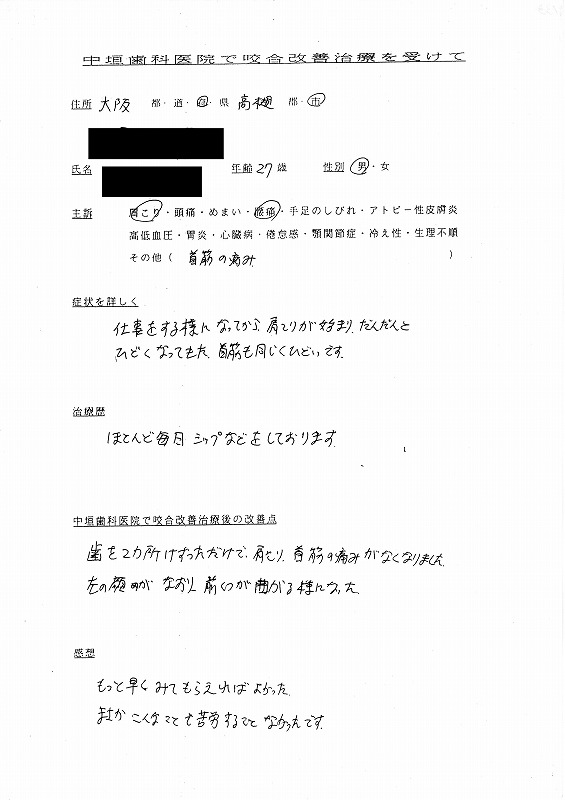 中垣歯科医院で咬合改善治療を受けて
住所 大阪 都・道・府・県 高槻 郡・市
氏名 年齢 27 歳 性別 男・女
主訴 肩こり・頭痛・めまい・腰痛・手足のしびれ・アトピー性皮膚炎
高低血圧・胃炎・心臓病・倦怠感・顎関節症・冷え性・生理不順
その他（ 首筋の痛み ）
症状を詳しく
仕事をする様になってから、肩こりが始まり、だんだんと
ひどくなってきた、首筋も同じくひどいです。
治療歴
ほとんど毎日 シップなどをしております
中垣歯科医院で咬合改善治療後の改善点
歯を2カ所けずっただけで、肩こり、首筋の痛みがなくなりました
左の がなおり 前くつが曲がる様になった
感想
もっと早くみてもらえればよかった
こんなことで苦労することなかったです。